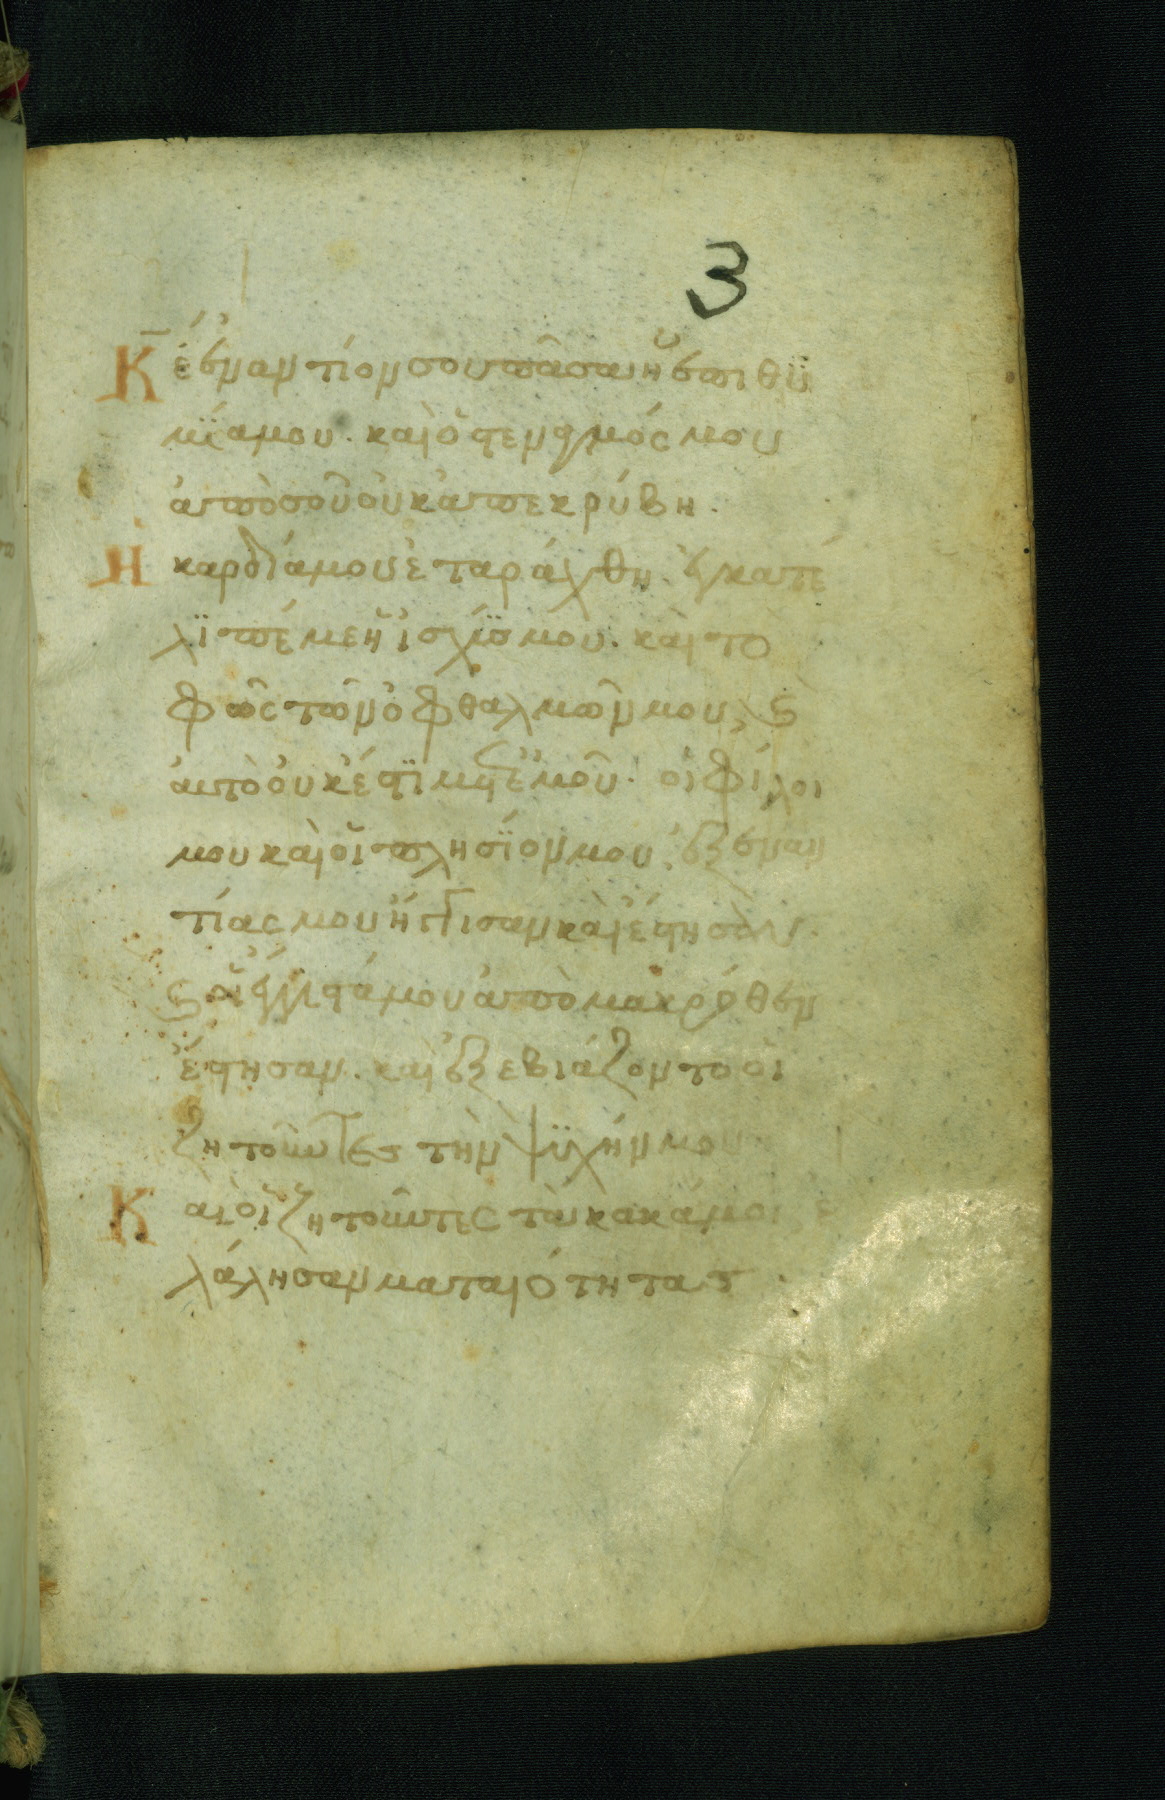 3
Κ̅ε ἐναντίον σου πᾶσα ἡ ἐπιθϋ
μΐα μου. καὶ ὁ στεναγμός μου
ἀπὸ σοῦ οὐκ ἀπεκρύβη.
Ἡ καρδία μου ἐταράχθη. ἐγκατέ
λϊπέ με ἡ ἰσχΰς μου. καὶ το
φῶς τῶν ὀφθαλμῶν μου, ϛ
ἀυτὸ οὐκ έστϊ μετ' ἐμοῦ. οἱ φίλοι
μου καὶ οἱ πλησΐον μου ἐξ εναν
τίας μου ἤγγισαν καὶ έστησαν.
ϛ οἱ ἔγγιστά μου ἀπὸ μακρόθεν
ἔστησαν. καὶ ἐξεβιάζοντο οἱ
ζητοῦντες τὴν ψϋχήν μου
Καὶ οἱ ζητοῦντες τὰ κακά μοι ἐ
λάλησαν ματαιότητας.